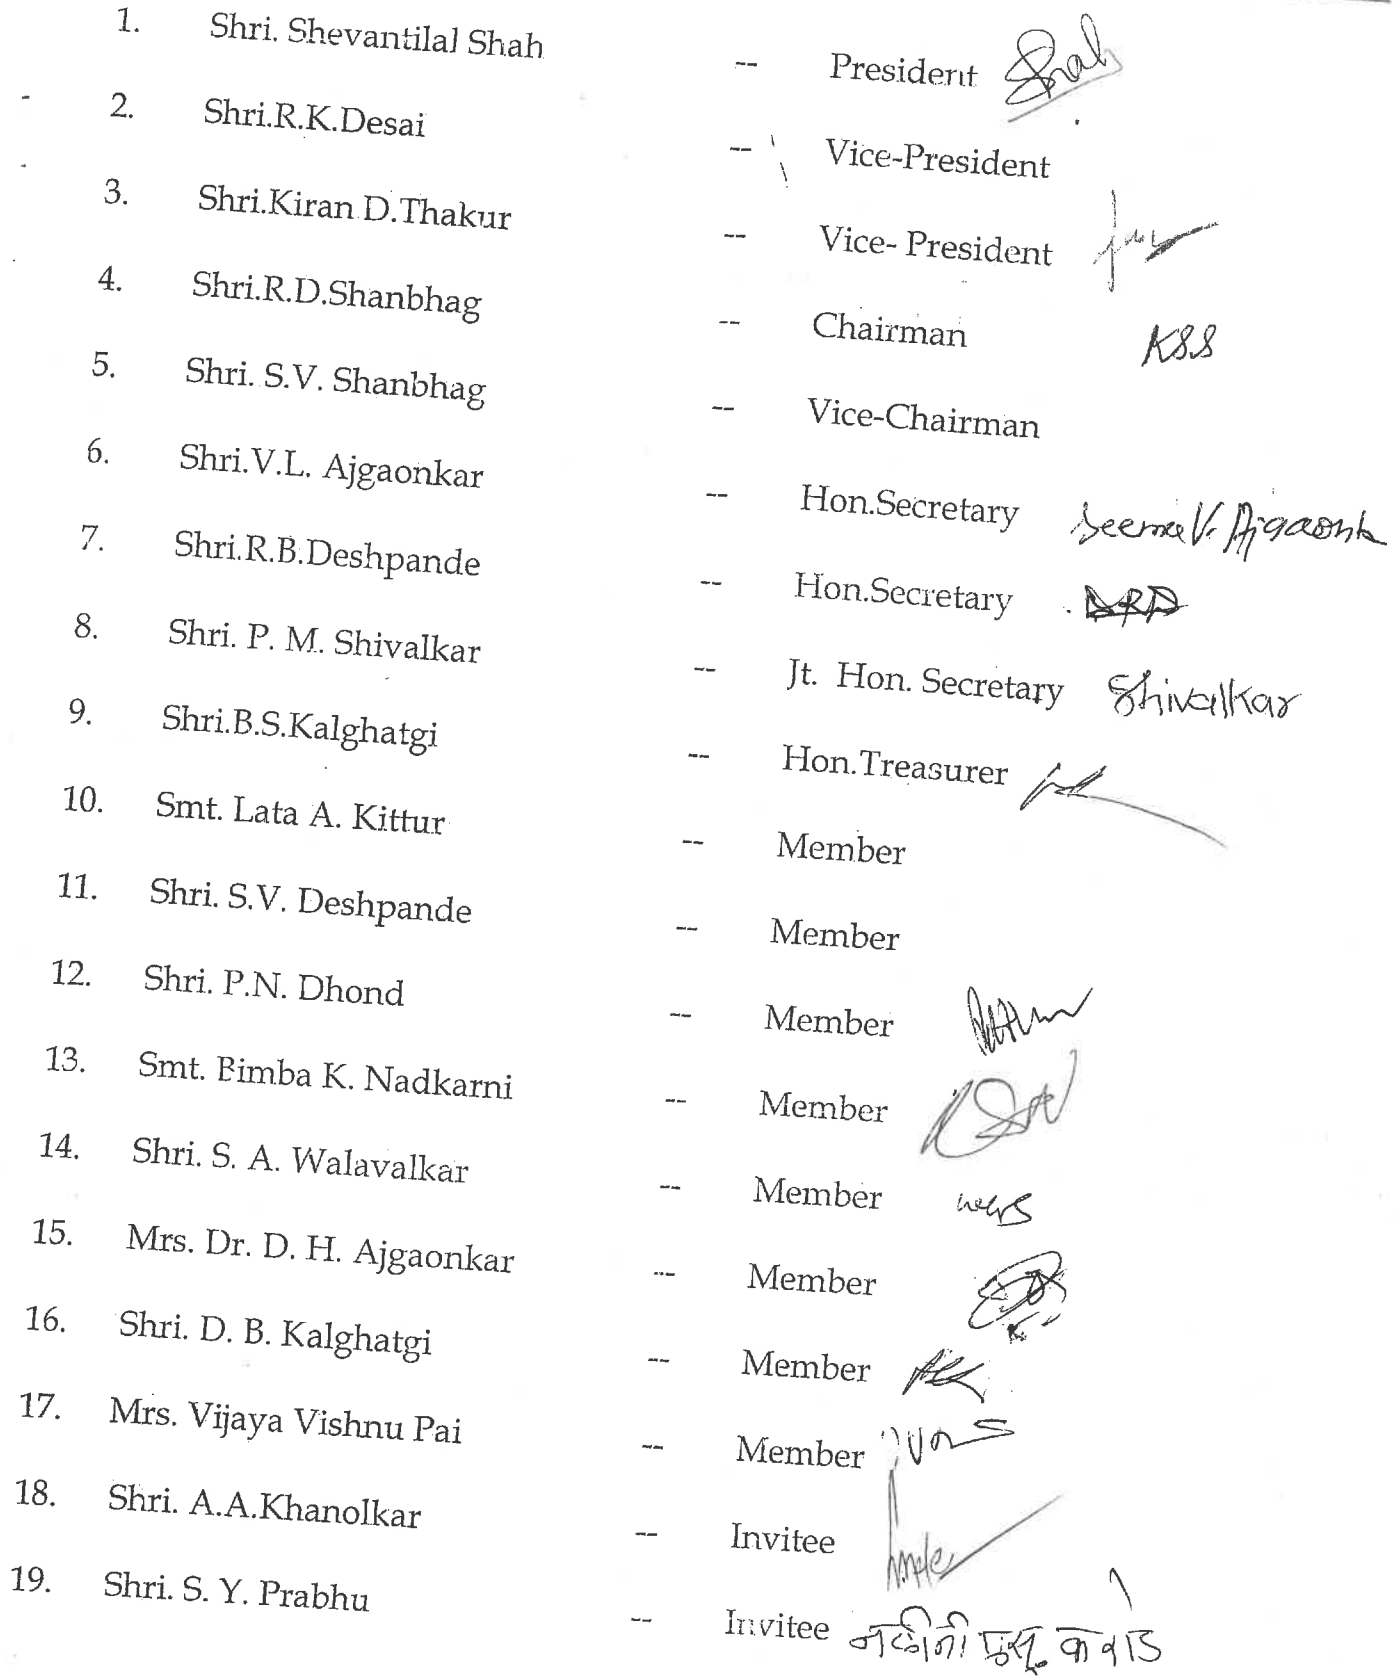 1. Shri. Shevantilal Shah -- President Shah
2. Shri.R.K.Desai -- Vice-President
3. Shri.Kiran D.Thakur -- Vice- President
4. Shri.R.D.Shanbhag -- Chairman KSS
5. Shri. S.V. Shanbhag -- Vice-Chairman
6. Shri.V.L. Ajgaonkar -- Hon.Secretary Seema V. Ajgaonk
7. Shri.R.B.Deshpande -- Hon.Secretary
8. Shri. P. M. Shivalkar -- Jt. Hon. Secretary Shivalkar
9. Shri.B.S.Kalghatgi -- Hon.Treasurer
10. Smt. Lata A. Kittur -- Member
11. Shri. S.V. Deshpande -- Member
12. Shri. P.N. Dhond -- Member
13. Smt. Bimba K. Nadkarni -- Member
14. Shri. S. A. Walavalkar -- Member
15. Mrs. Dr. D. H. Ajgaonkar -- Member
16. Shri. D. B. Kalghatgi -- Member
17. Mrs. Vijaya Vishnu Pai -- Member
18. Shri. A.A.Khanolkar -- Invitee
19. Shri. S. Y. Prabhu -- Invitee